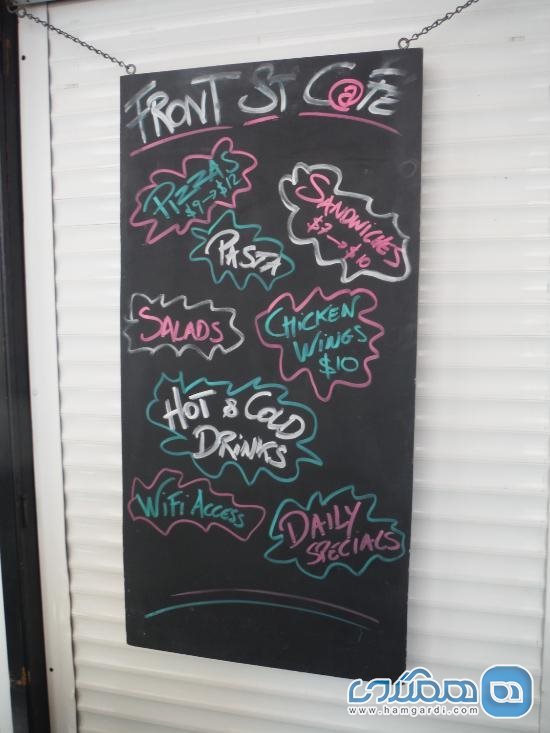 FRONT ST C@FE
PIZZAS
$9→$12
SANDWICHES
$7→$10
PASTA
SALADS
CHICKEN
WINGS
$10
HOT & COLD
DRINKS
WIFI ACCESS
DAILY
SPECIALS
همگردی
www.hamgardi.com